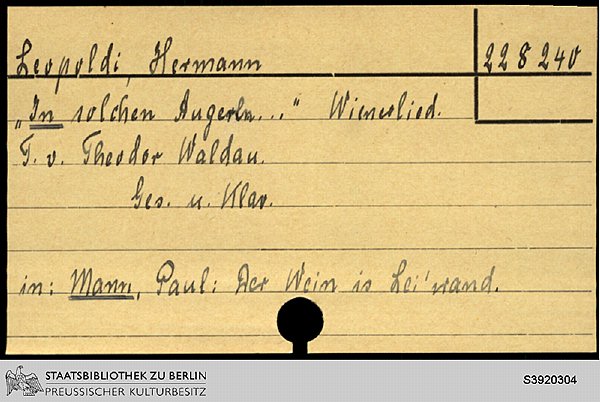 Leopoldi, Hermann
228240
„In solchen Augerln..." Wienerlied.
T. v. Theodor Waldau.
Ges. u. Klav.
in: Mann, Paul: Der Wein is Lei'wand.
STAATSBIBLIOTHEK ZU BERLIN
PREUSSISCHER KULTURBESITZ
S3920304